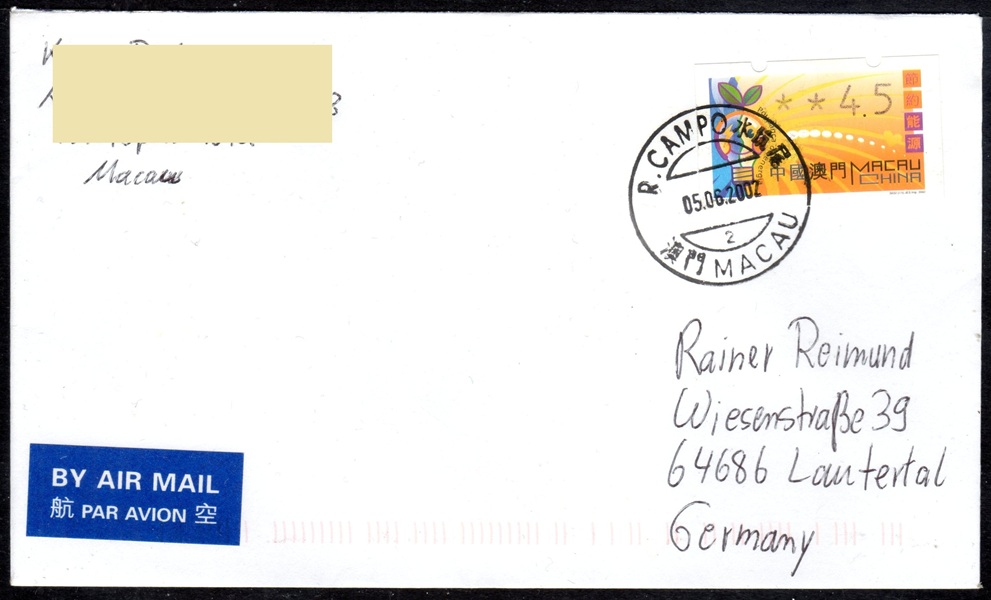 Macau
**4.5
節約能源
中國澳門 MACAU
CHINA
R.CAMPO 水坑尾
05.06.2002
2
澳門 MACAU
Rainer Reimund
Wiesenstraße 39
64686 Lautertal
Germany
BY AIR MAIL
航 PAR AVION 空